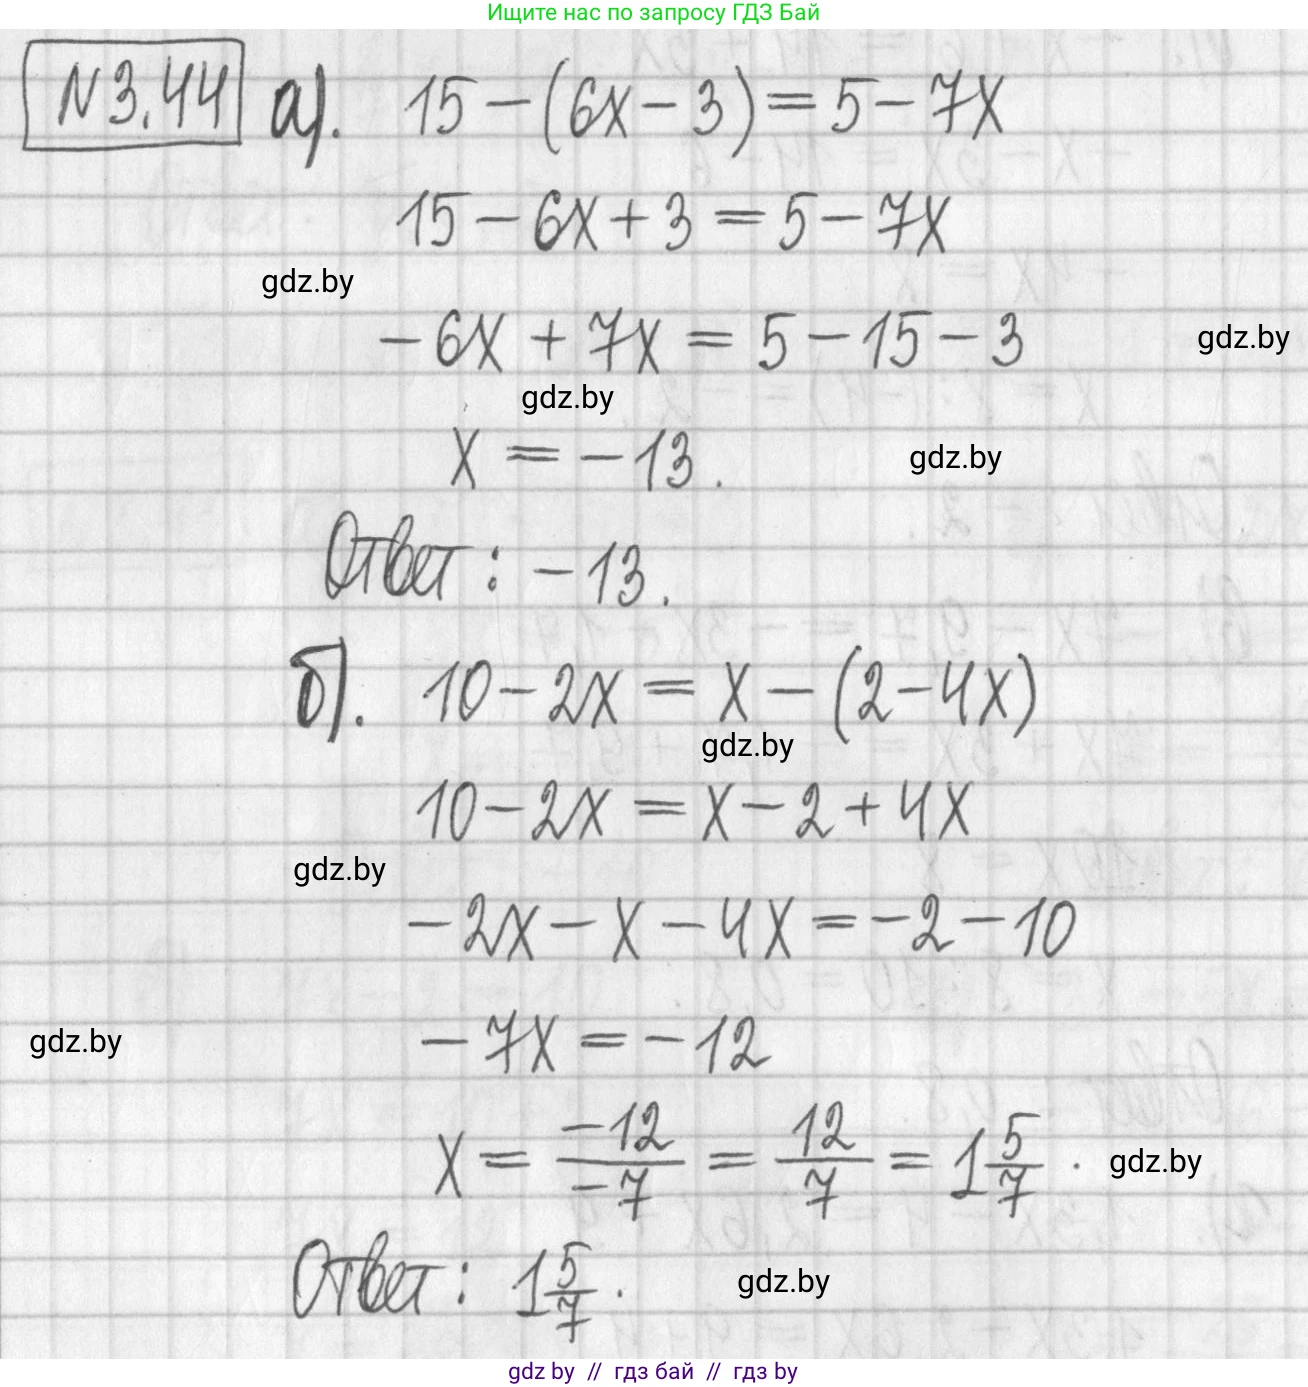 Ищите нас по запросу ГДЗ Бай
№3.44 а). 15 − (6x − 3) = 5 − 7x
15 − 6x + 3 = 5 − 7x
gdz.by
−6x + 7x = 5 − 15 − 3
gdz.by
gdz.by
x = −13.
gdz.by
Ответ: −13.
б). 10 − 2x = x − (2 − 4x)
gdz.by
10 − 2x = x − 2 + 4x
gdz.by
−2x − x − 4x = −2 − 10
−7x = −12
gdz.by
x = −12/−7 = 12/7 = 1 5/7.
gdz.by
Ответ: 1 5/7.
gdz.by
gdz by // гдз бай // гдз by